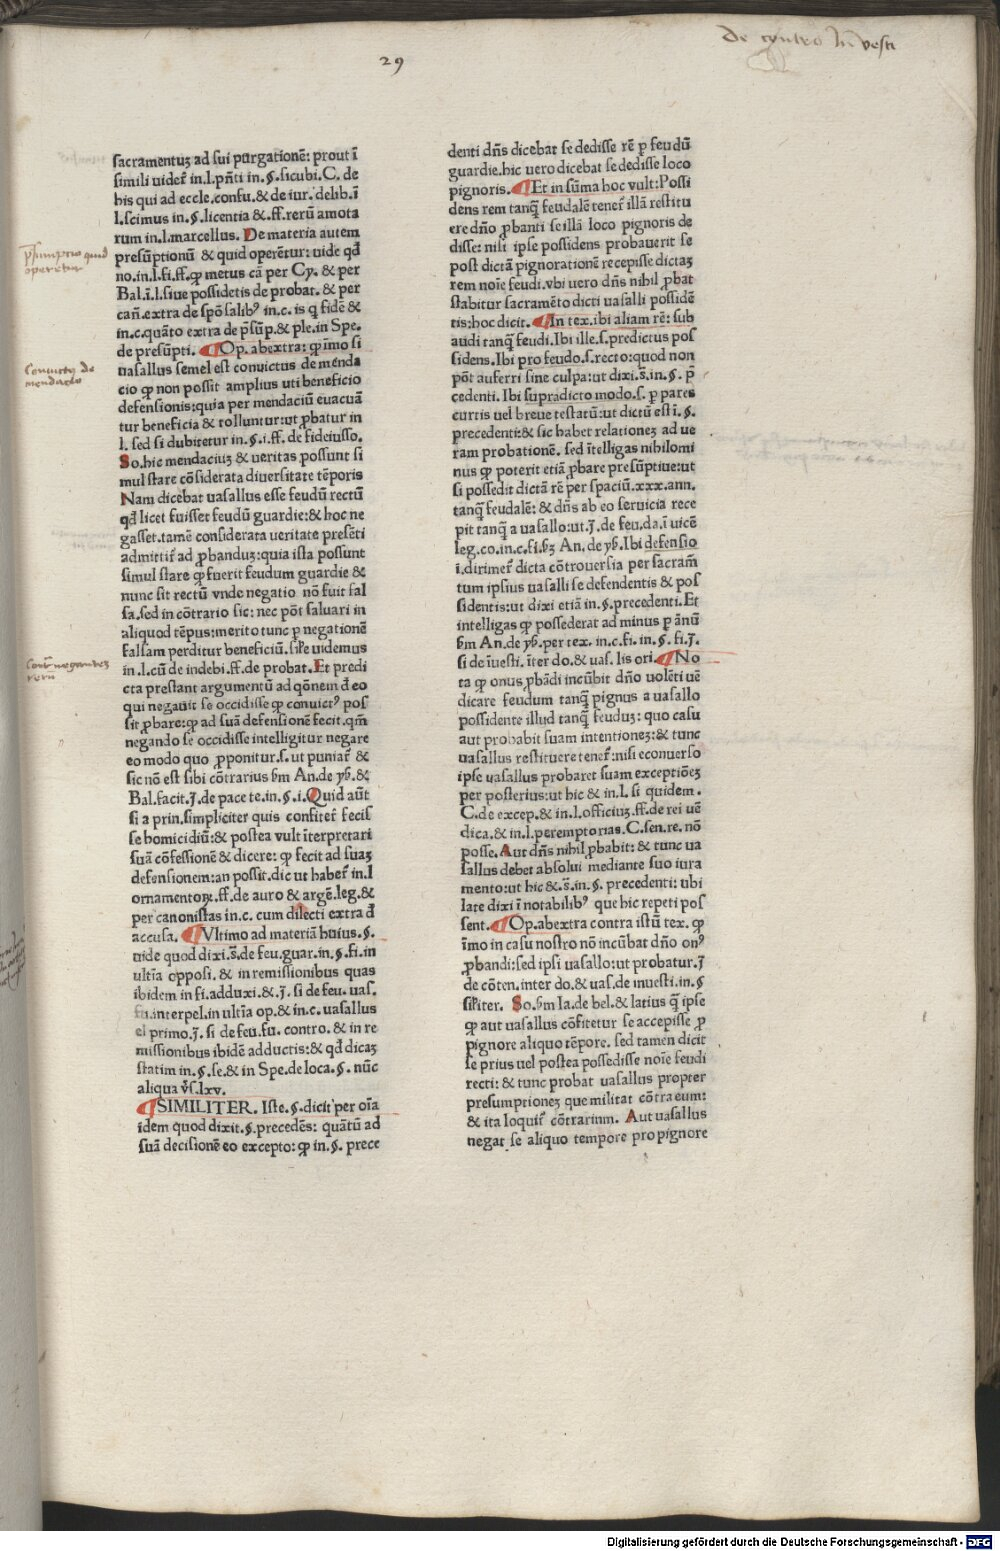 29
De contro Inuesti
sacramentuʒ ad sui purgationē: prout ī
simili uidet̄ in.l.pn̄ti in.§.sicubi.C. de
his qui ad eccle.confu.& de iur. delib.ī
l.scimus in.§.licentia & .ff.rerū amota
rum in.l.marcellus. De materia autem
presūptionū & quid operētur: uide qđ
no.in.l.fi.ff.ꝙ metus cā per Cy. & per
Bal.ī.l.siue possidetis de probat. & per
can̄.extra de spōsalibꝰ in.c. is q̨ fidē &
in.c.quāto extra de p̄sūp.& ple.in Spe.
de presūpti. ¶Op. abextra: ꝙ īmo si
uasallus semel est conuictus de menda
cio ꝙ non possit amplius uti beneficio
defensionis:quia per mendaciū euacuā
tur beneficia & tolluntur:ut ꝓbatur in
l. sed si dubitetur in.§.i.ff. de fideiusso.
So.hic mendaciuʒ & ueritas possunt si
mul stare cōsiderata diuersitate tēporis
Nam dicebat uasallus esse feudū rectū
qđ licet fuisset feudū guardie:& hoc ne
gasset.tamē considerata ueritate presēti
admittit̄ ad ꝓbanduʒ:quia ista possunt
simul stare ꝙ fuerit feudum guardie &
nunc sit rectū vnde negatio nō fuit fal
sa.sed in cōtrario sic: nec pōt saluari in
aliquod tēpus:merito tunc ꝑ negationē
falsam perditur beneficiū.sil̄e uidemus
in.l.cū de indebi.ff.de probat. Et predi
cta prestant argumentū ad q̄onem đ eo
qui negauit se occidisse ꝙ conuictꝰ pos
sit ꝓbare:ꝙ ad suā defensionē fecit.qm̄
negando se occidisse intelligitur negare
eo modo quo ꝓponitur.s.ut puniat̄ &
sic nō est sibi cōtrarius ẜm An.de yẜ.&
Bal.facit.J.de pace te.in.§.i.Quid aūt
si a prin.simpliciter quis confitet̄ fecis
se homicidiū:& postea vult īterpretari
suā cōfessionē & dicere: ꝙ fecit ad suaʒ
defensionem:an possit.dic ut habet̄ in.l
ornamentoꝝ.ff.de auro & argē.leg.&
per canonistas in.c. cum dilecti extra đ
accusa. ¶Vltimo ad materiā huius.§.
uide quod dixi.s̄.de feu.guar.in.§.fi.in
ultīa opposi. & in remissionibus quas
ibidem in fi.adduxi.&.J. si de feu. uas.
fu.interpel.in ultīa op.& in.c. uasallus
el primo.J. si de feu.fu. contro. & in re
missionibus ibidē adductis:& qđ dicaʒ
statim in.§.se.& in Spe.de loca.§. nūc
aliqua v̄s.lxv.
¶SIMILITER. Iste.§.dicit per oīa
idem quod dixit.§.precedēs: quātū ad
suā decisionē eo excepto: ꝙ in.§. prece
denti dn̄s dicebat se dedisse rē ꝑ feudū
guardie.hic uero dicebat se dedisse loco
pignoris. ¶Et in sūma hoc vult:Possi
dens rem tanq̄ feudalē tenet̄ illā restitu
ere dn̄o ꝓbanti se illā loco pignoris de
disse: nisi ipse possidens probauerit se
post dictā pignorationē recepisse dictaʒ
rem noīe feudi.vbi uero dn̄s nihil ꝓbat
stabitur sacramēto dicti uasalli possidē
tis:hoc dicit. ¶In tex.ibi aliam rē: sub
audi tanq̄ feudi.Ibi ille.s.predictus pos
sidens.Ibi pro feudo.s.recto:quod non
pōt auferri sine culpa:ut dixi.s̄.in.§. p̄
cedenti. Ibi supradicto modo.s. ꝑ pares
curtis uel breue testatū:ut dictū est ī.§.
precedenti:& sic habet relationeʒ ad ue
ram probationē. sed ītelligas nihilomi
nus ꝙ poterit etiā ꝓbare presūptiue:ut
si possedit dictā rē per spaciū.xxx.ann.
tanq̄ feudalē: & dn̄s ab eo seruicia rece
pit tanq̄ a uasallo:ut.J. de feu.da.ī uicē
leg.co.in.c.fi.ẜʒ An. de yẜ.Ibi defensio
ī.dirimet̄ dicta cōtrouersia per sacram̄
tum ipsius uasalli se defendentis & pos
sidentis:ut dixi etiā in.§.precedenti.Et
intelligas ꝙ possederat ad minus ꝑ ānū
ẜm An.de yẜ.per tex. in.c.fi.in.§.fi.J.
si de īuesti. īter do.& uas. lis ori. ¶No
ta ꝙ onus ꝓbādi incūbit dn̄o uolēti uē
dicare feudum tanq̄ pignus a uasallo
possidente illud tanq̄ feuduʒ: quo casu
aut probabit suam intentioneʒ:& tunc
uasallus restituere tenet̄:nisi econuerso
ipse uasallus probaret suam exceptiōeʒ
per posterius:ut hic & in.l. si quidem.
C.de excep.& in.l.officiuʒ.ff.de rei uē
dica.& in.l.peremptorias.C.sen.re. nō
posse. Aut dn̄s nihil ꝓbabit: & tunc ua
sallus debet absolui mediante suo iura
mento:ut hic &.s̄.in.§. precedenti: ubi
late dixi ī notabilibꝰ que hic repeti pos
sent. ¶Op.abextra contra istū tex. ꝙ
īmo in casu nostro nō incūbat dn̄o onꝰ
ꝓbandi:sed ipsi uasallo:ut probatur.J
de cōten.inter do.& uas.de inuesti.in.§
sil̄iter. So.ẜm Ia.de bel.& latius q̄ ipse
ꝙ aut uasallus cōfitetur se accepisse ꝓ
pignore aliquo tēpore. sed tamen dicit
se prius uel postea possedisse noīe feudi
recti: & tunc probat uasallus propter
presumptioneʒ que militat cōtra eum:
& ita loquit̄ cōtrarium. Aut uasallus
negat se aliquo tempore pro pignore
p̄sumptio quid
operetur
Conuictꝰ de
mendacio
Digitalisierung gefördert durch die Deutsche Forschungsgemeinschaft - DFG